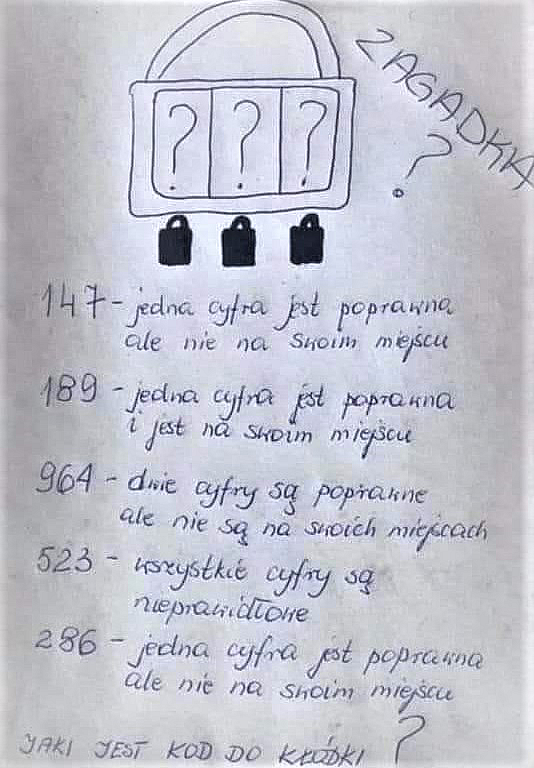 ZAGADKA
?
? ? ?
147 - jedna cyfra jest poprawna
ale nie na swoim miejscu
189 - jedna cyfra jest poprawna
i jest na swoim miejscu
964 - dwie cyfry są poprawne
ale nie są na swoich miejscach
523 - wszystkie cyfry są
nieprawidłowe
286 - jedna cyfra jest poprawna
ale nie na swoim miejscu
JAKI JEST KOD DO KŁÓDKI ?